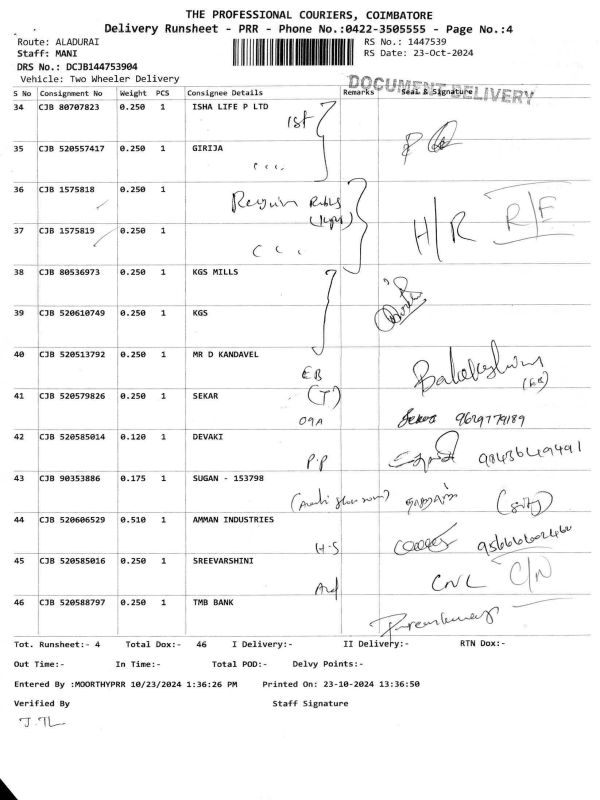 THE PROFESSIONAL COURIERS, COIMBATORE
Delivery Runsheet - PRR - Phone No.:0422-3505555 - Page No.:4
Route: ALADURAI RS No.: 1447539
Staff: MANI RS Date: 23-Oct-2024
DRS No.: DCJB144753904
Vehicle: Two Wheeler Delivery
DOCUMENT DELIVERY
S No Consignment No Weight PCS Consignee Details Remarks Seal & Signature
34 CJB 80707823 0.250 1 ISHA LIFE P LTD
1st
35 CJB 520557417 0.250 1 GIRIJA
36 CJB 1575818 0.250 1
H/R R/E
37 CJB 1575819 0.250 1
38 CJB 80536973 0.250 1 KGS MILLS
39 CJB 520610749 0.250 1 KGS
40 CJB 520513792 0.250 1 MR D KANDAVEL
EB
41 CJB 520579826 0.250 1 SEKAR (T)
09A 9629779189
42 CJB 520585014 0.120 1 DEVAKI
P.P 9843649491
43 CJB 90353886 0.175 1 SUGAN - 153798
44 CJB 520606529 0.510 1 AMMAN INDUSTRIES
H-S
45 CJB 520585016 0.250 1 SREEVARSHINI
CNL C/N
46 CJB 520588797 0.250 1 TMB BANK
Tot. Runsheet:- 4 Total Dox:- 46 I Delivery:- II Delivery:- RTN Dox:-
Out Time:- In Time:- Total POD:- Delvy Points:-
Entered By :MOORTHYPRR 10/23/2024 1:36:26 PM Printed On: 23-10-2024 13:36:50
Verified By Staff Signature